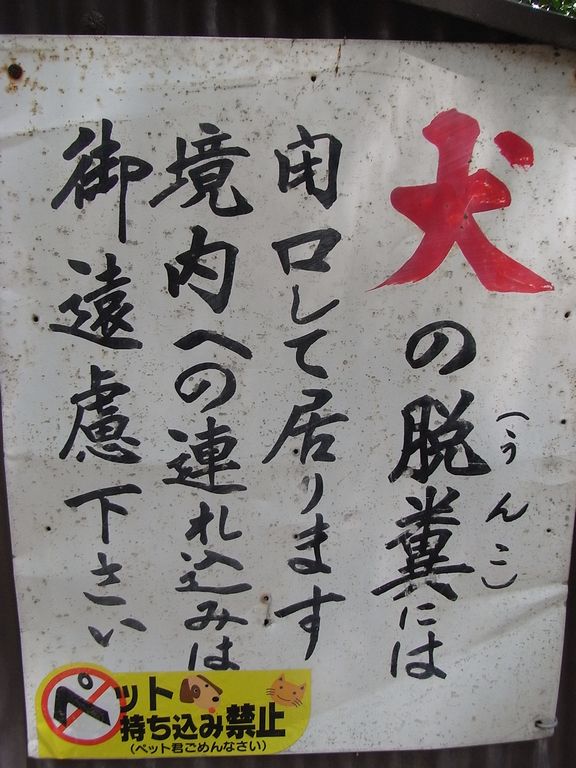 犬の脱糞には
(うんこ)
閉口して居ります
境内への連れ込みは
御遠慮下さい
ペット
持ち込み禁止
(ペット君ごめんなさい)